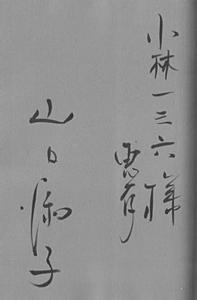 小林一三六様
恵存
山口淑子